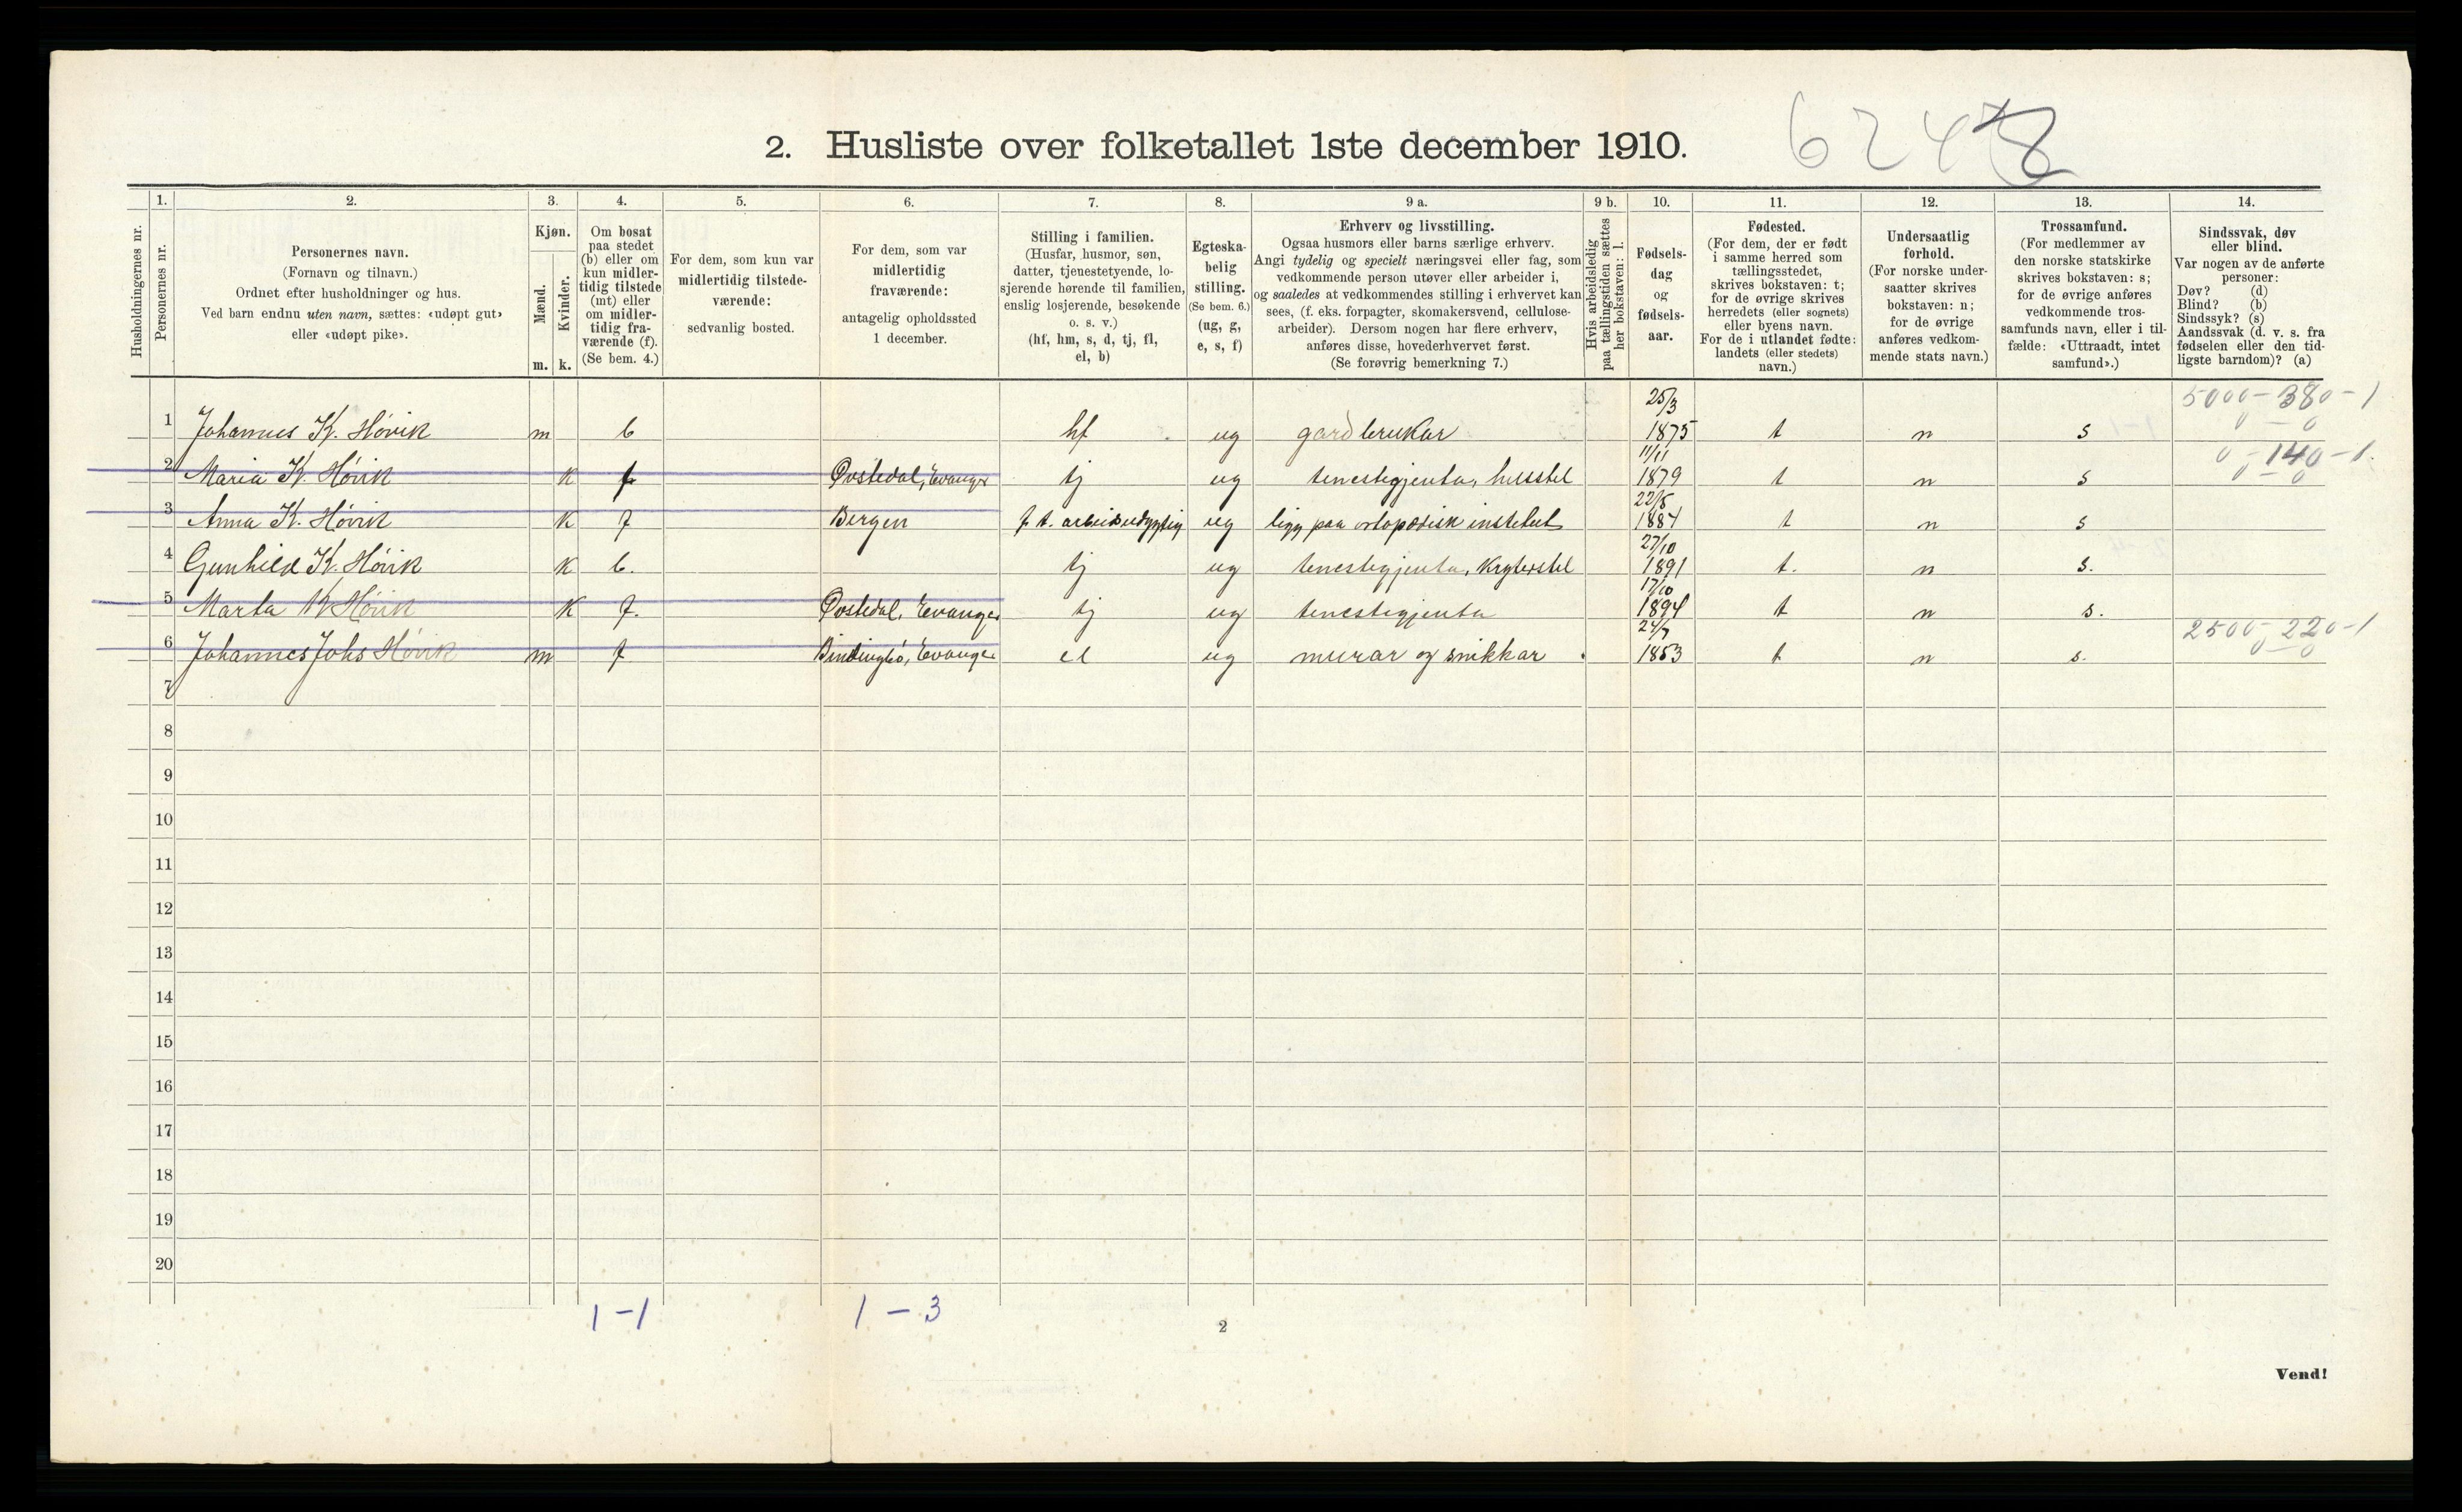 2. Husliste over folketallet 1ste december 1910.
1. 2. 3. 4. 5. 6. 7. 8. 9 a. 9 b. 10. 11. 12. 13. 14.
Husholdningernes nr.
Personernes nr.
Personernes navn.
(Fornavn og tilnavn.)
Ordnet efter husholdninger og hus.
Ved barn endnu uten navn, sættes: «udøpt gut»
eller «udøpt pike».
Kjøn.
Mænd.
Kvinder.
m. k.
Om bosat
paa stedet
(b) eller om
kun midler-
tidig tilstede
(mt) eller
om midler-
tidig fra-
værende (f).
(Se bem. 4.)
For dem, som kun var
midlertidig tilstede-
værende:
sedvanlig bosted.
For dem, som var
midlertidig
fraværende:
antagelig opholdssted
1 december.
Stilling i familien.
(Husfar, husmor, søn,
datter, tjenestetyende, lo-
sjerende hørende til familien,
enslig losjerende, besøkende
o. s. v.)
(hf, hm, s, d, tj, fl,
el, b)
Egteska-
belig
stilling.
(Se bem. 6.)
(ug, g,
e, s, f)
Erhverv og livsstilling.
Ogsaa husmors eller barns særlige erhverv.
Angi tydelig og specielt næringsvei eller fag, som
vedkommende person utøver eller arbeider i,
og saaledes at vedkommendes stilling i erhvervet kan
sees, (f. eks. forpagter, skomakersvend, cellulose-
arbeider). Dersom nogen har flere erhverv,
anføres disse, hovederhvervet først.
(Se forøvrig bemerkning 7.)
Hvis arbeidsledig
paa tællingstiden sættes
her bokstaven: l.
Fødsels-
dag
og
fødsels-
aar.
Fødested.
(For dem, der er født
i samme herred som
tællingsstedet,
skrives bokstaven: t;
for de øvrige skrives
herredets (eller sognets)
eller byens navn.
For de i utlandet fødte:
landets (eller stedets)
navn.)
Undersaatlig
forhold.
(For norske under-
saatter skrives
bokstaven: n;
for de øvrige
anføres vedkom-
mende stats navn.)
Trossamfund.
(For medlemmer av
den norske statskirke
skrives bokstaven: s;
for de øvrige anføres
vedkommende tros-
samfunds navn, eller i til-
fælde: «Uttraadt, intet
samfund».)
Sindssvak, døv
eller blind.
Var nogen av de anførte
personer:
Døv? (d)
Blind? (b)
Sindssyk? (s)
Aandssvak (d. v. s. fra
fødselen eller den tid-
ligste barndom)? (a)
1 Johannes K. Høvik m b hf ug gardbrukar 25/3 1875 t n s 5000-380-1 0-0
2 Maria K. Høvik k f Øvstedal, Evanger tj ug tenestegjenta, husstel 11/11 1879 t n s 0-140-1. 0-0
3 Anna K. Høvik k f Bergen f. t. arbeidsudygtig ug ligg paa ortopædisk institut 22/8 1884 t n s
4 Gunhild K. Høvik k b. tj ug tenestegjenta, Krøterstel 27/10 1891 t. n s.
5 Marta K Høvik k f. Øvstedal, Evanger tj ug tenestegjenta 17/10 1894 t n s.
6 Johannes Johs Høvik m f Bindingbø, Evanger el ug murar og snikkar 24/7 1853 t n s. 2500-220-1 0-0
7
8
9
10
11
12
13
14
15
16
17
18
19
20
1-1 1-3
2
Vend!